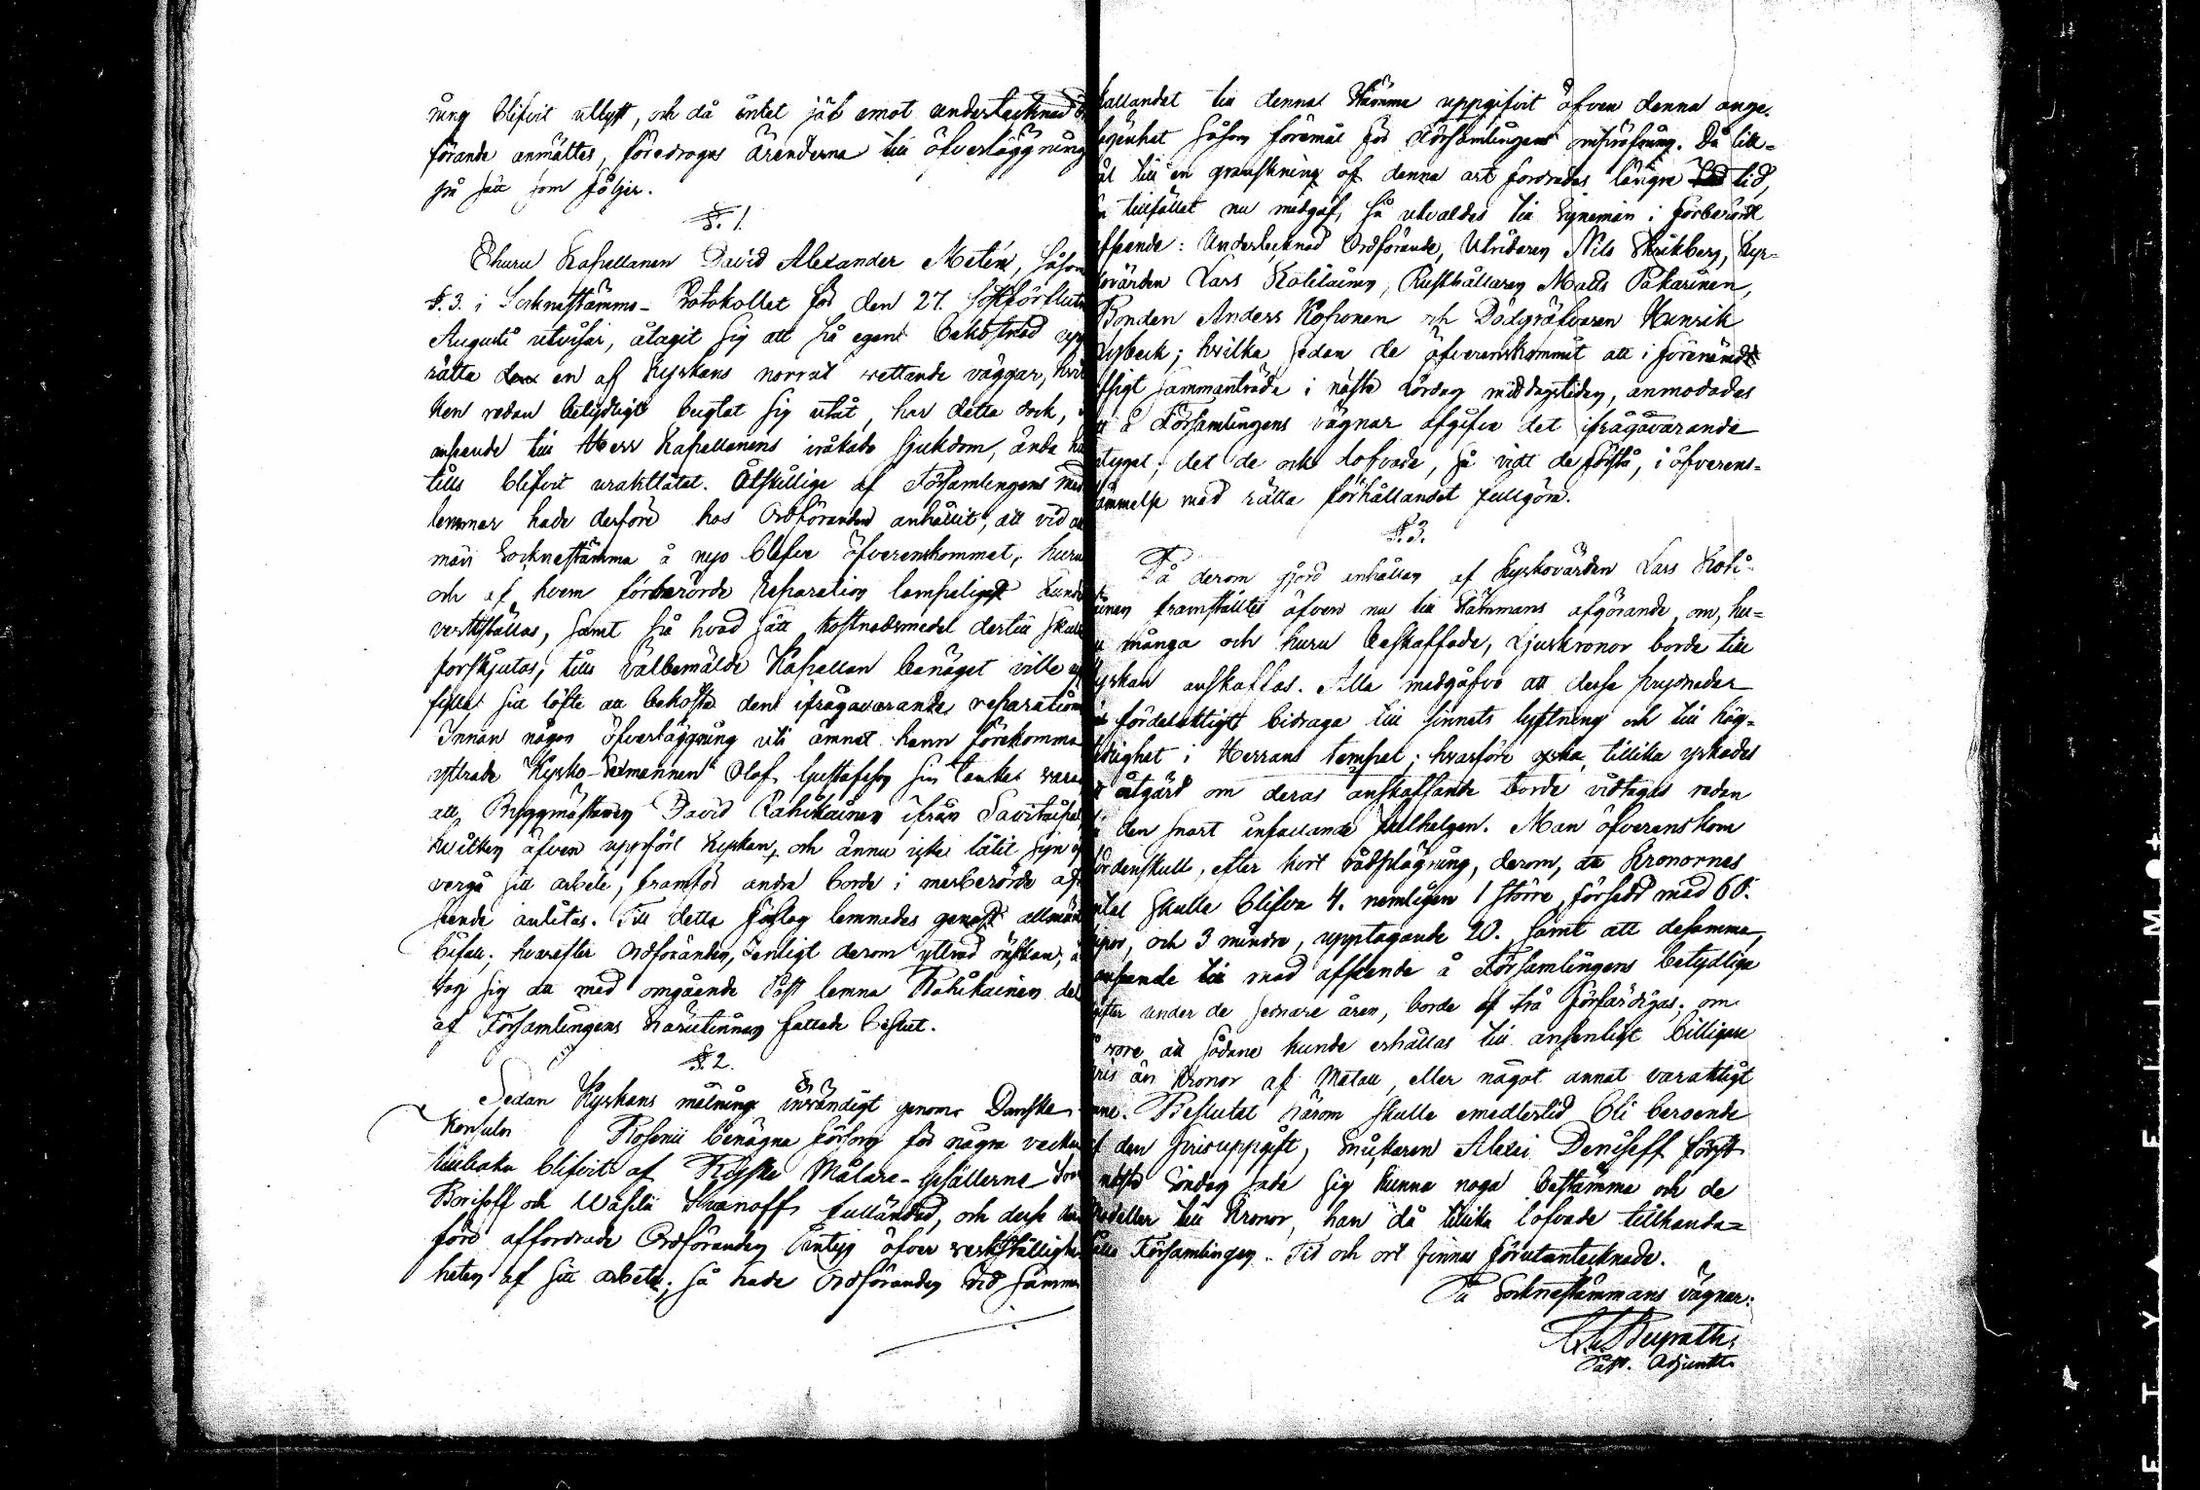 ning blifvit utlyst, och då intet jäf emot undertecknad Or
förande anmältes, föredrogos ärenderna till öfverläggning
på sätt som följer.
§. 1.
Ehuru Kapellanen David Alexander Metén, såsom
§. 3. i Socknestämmo-Protokollet för den 27. sistförflutn
Augusti utvisar, åtagit sig att på egen bekostnad upp
rätta en af Kyrkans norrut vettande väggar, hvil
ken redan betydligt bugtat sig utåt, har detta dock, i
anseende till Herr Kapellanens iråkade sjukdom, ända här
tills blifvit uraktlåtet. Åtskillige af Församlingens med
lemmar hade derföre hos Ordföranden anhållit, att vid all
män Socknestämma å nyo blefve öfverenskommet, huru
och af hvem förberörde reparation lämpeligast kunde
verkställas, samt på hvad sätt kostnadsmedel dertill skulle
förskjutas, tills välbemälde Kapellan benäget ville upp
fylla sitt löfte att bekosta den ifrågavarande reparation
Innan någon öfverläggning uti ämnet hann förekomma
yttrade Kyrko-Sexmannen Olof Gustafsson sin tanke vara
att Byggmästaren David Rahikainen ifrån Savitaipal
hvilken äfven uppfört Kyrkan, och ännu icke låtit sig
vergå sitt arbete, framför andra borde i merberörde af
seende anlitas. Till detta förslag lemnades genast allmänt
bifall; hvarefter Ordföranden, enligt derom yttrad önskan, å
tog sig att med omgående Post lemna Rahikainen del
af Församlingens härutinnan fattade beslut.
§. 2.
Sedan Kyrkans målning invändigt genom Danske
Konsuln Rosenii benägna försorg för några veckor
tillbaka blifvit af Ryske Målare-Gesällerne
Borisoff och Wasili Ivanoff fulländad, och desse
före affordrade Ordföranden intyg öfver verkställig
heten af sitt arbete; så hade Ordföranden vid samman
kallandet till denna Stämma uppgifvit äfven denna ange-
lägenhet såsom föremål för Församlingens ompröfning. Då lik-
väl till en granskning af denna art fordrades längre tid,
än tillfället nu medgaf, så utvaldes till Synemän i förberördt
afseende: Undertecknad Ordförande, Utridaren Nils Stråkberg, Kyr-
kovärden Lars Kotilainen, Rusthållaren Matts Pakarinen,
Bonden Anders Kosonen och Dödgräfvaren Henrik
Nybeck; hvilka sedan de öfverenskommit att i förenämdt
afsigt sammanträda i nästa Lördag middagstiden, anmodades
att å Församlingens vägnar afgifva det ifrågavarande
intyget; det de ock lofvade, så vidt de förstå, i öfverens-
stämmelse med rätta förhållandet fullgöra.
§. 3.
På derom gjord anhållan af Kyrkovärden Lars Koti-
lainen framställtes äfven nu till Stämmans afgörande, om, hu-
ru många och huru beskaffade, Ljuskronor borde till
Kyrkan anskaffas. Alla medgåfvo att desse prydnader
fördelaktigt bidraga till sinnets lyftning och till hög-
tidlighet i Herrans tempel; hvarföre ock tillika yrkades
att åtgärd om deras anskaffande borde vidtagas redan
till den snart infallande Julhelgen. Man öfverenskom
fördenskull, efter kort rådplägning, derom, att Kronornes
antal skulle blifva 4. nemligen 1 större, försedd med 60.
pipor, och 3 mindre, upptagande 20. samt att desamma,
med afseende å Församlingens betydliga
utgifter under de sednare åren, borde af trä förfärdigas; om
ej vore att sådane kunde erhållas till ansenligt billigare
pris än Kronor af Metall, eller något annat varaktigt
ämne. Beslutet härom skulle emedlertid bli beroende
af den prisuppgift, Snickaren Alexei Deniseff först
nästa Söndag sade sig kunna noga bestämma och de
Modeller till Kronor, han då tillika lofvade tillhanda-
hålla Församlingen. Tid och ort finnas förutantecknade.
På Socknestämmans vägnar:
Past. Adjunkt.